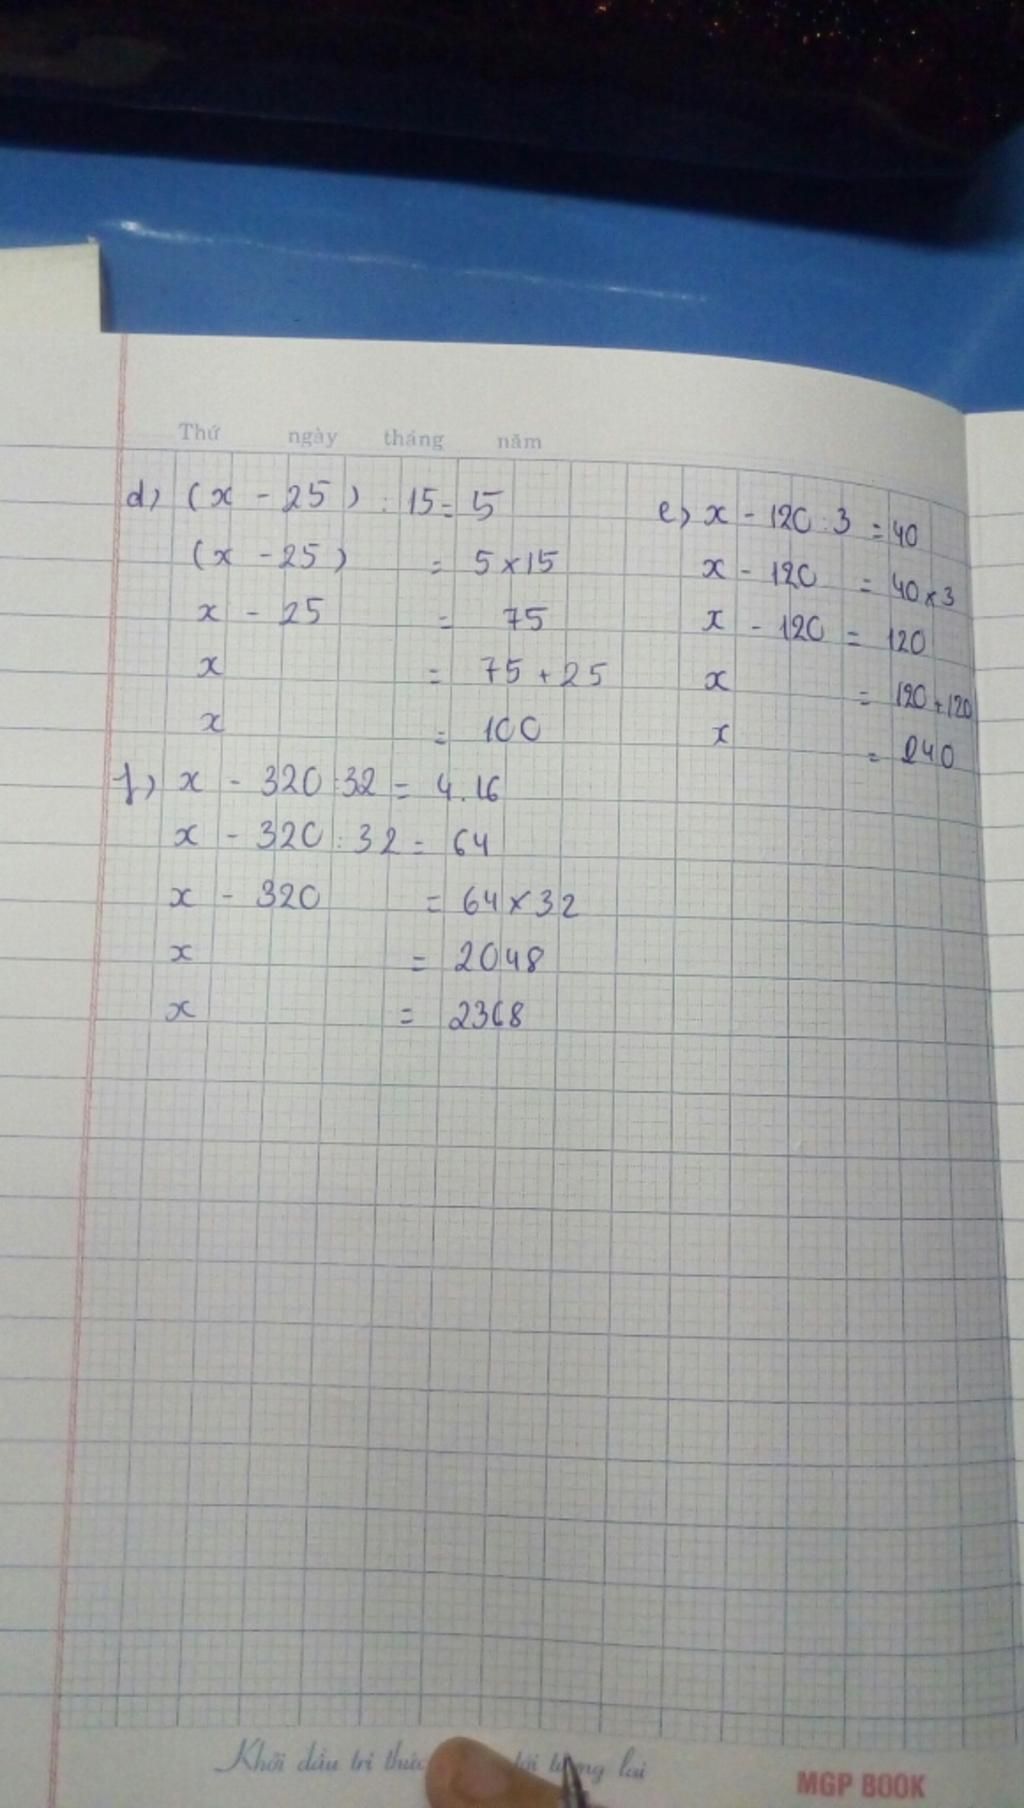 Thứ ngày tháng năm
d) (x - 25) : 15 = 5
(x - 25) = 5 x 15
x - 25 = 75
x = 75 + 25
x = 100
e) x - 120 : 3 = 40
x - 120 = 40 x 3
x - 120 = 120
x = 120 + 120
x = 240
f) x - 320 : 32 = 4.16
x - 320 : 32 = 64
x - 320 = 64 x 32
x = 2048
x = 2368
Khởi đầu tri thức tương lai
MGP BOOK